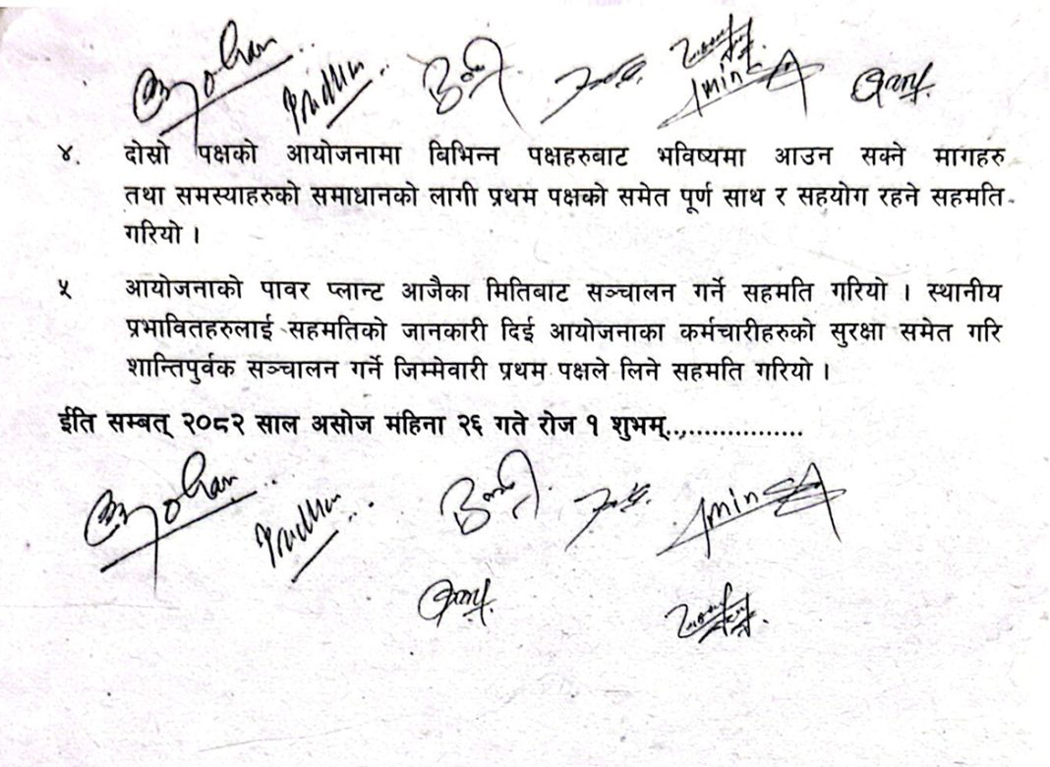 ४. दोस्रो पक्षको आयोजनामा बिभिन्न पक्षहरुबाट भविष्यमा आउन सक्ने मागहरु
तथा समस्याहरुको समाधानको लागी प्रथम पक्षको समेत पूर्ण साथ र सहयोग रहने सहमति
गरियो ।
५ आयोजनाको पावर प्लान्ट आजैका मितिबाट सञ्चालन गर्ने सहमति गरियो । स्थानीय
प्रभावितहरुलाई सहमतिको जानकारी दिई आयोजनाका कर्मचारीहरुको सुरक्षा समेत गरि
शान्तिपुर्वक सञ्चालन गर्ने जिम्मेवारी प्रथम पक्षले लिने सहमति गरियो ।
ईति सम्बत् २०८२ साल असोज महिना २६ गते रोज १ शुभम्..,.................